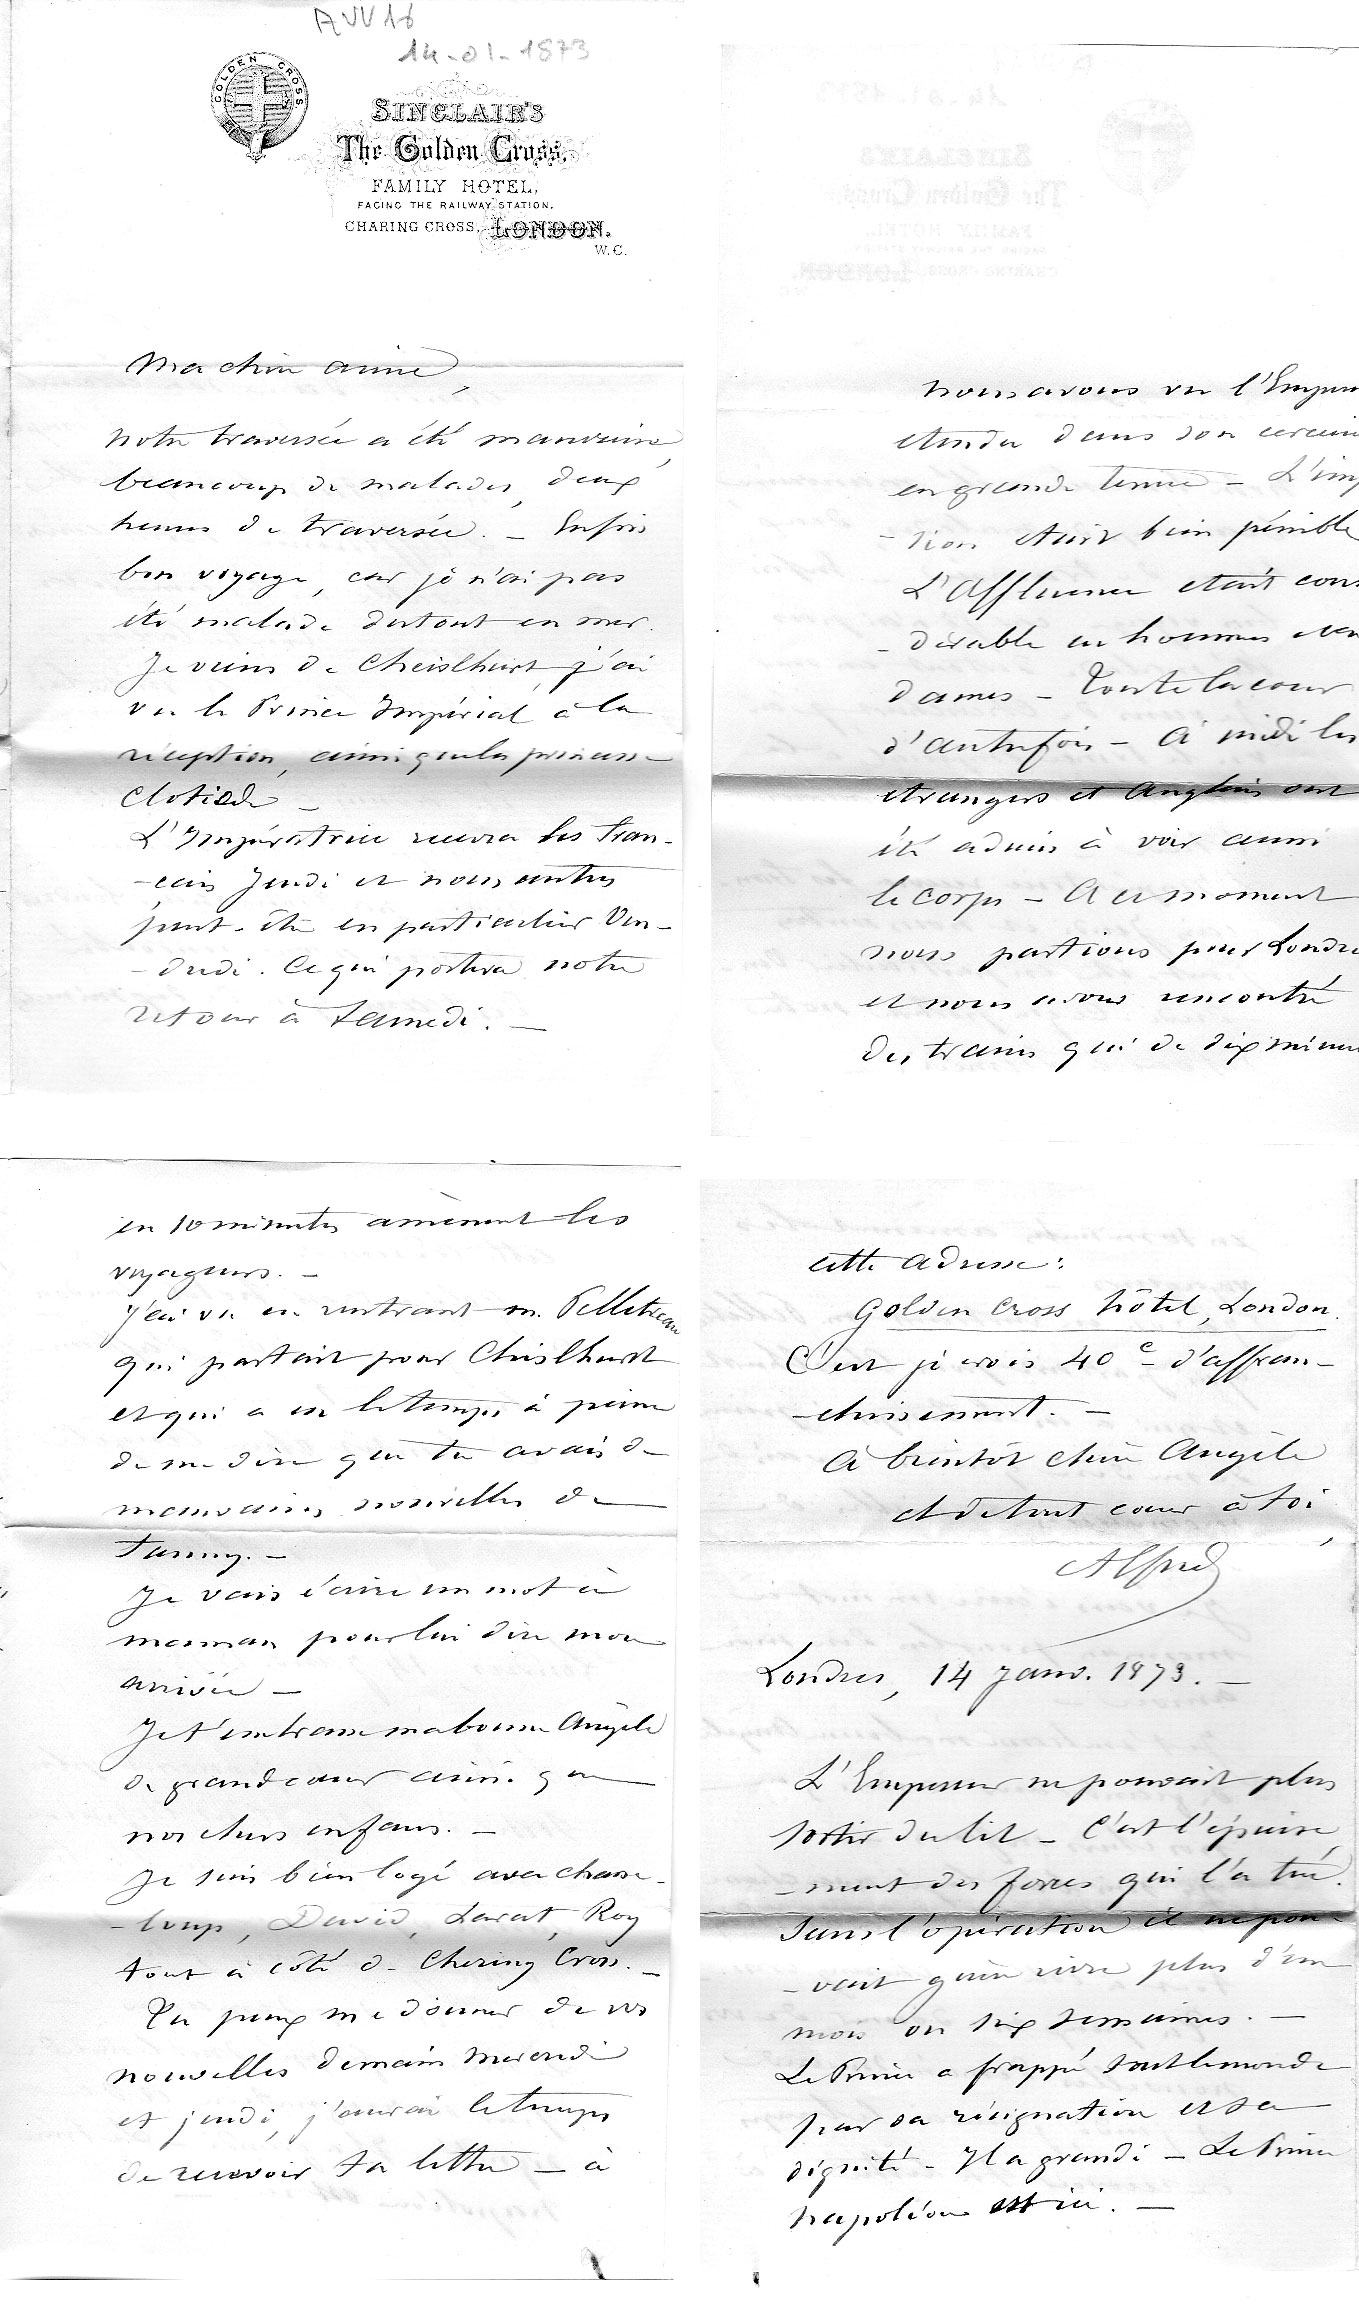 AVV16
14-01-1873
GOLDEN CROSS
SINCLAIR'S
The Golden Cross,
FAMILY HOTEL,
FACING THE RAILWAY STATION,
CHARING CROSS, LONDON.
W.C.
Ma chère aimée,
notre traversée a été mauvaise,
beaucoup de malades, deux
heures de traversée. _ Enfin
bon voyage, car je n'ai pas
été malade du tout en mer.
Je viens de Cheislhurst, j'ai
vu le Prince Impérial à la
réception, ainsi que la princesse
Clotilde _
L'Impératrice recevra les Fran-
-çais Jeudi et nous autres
peut-être en particulier Ven-
-dredi. Ce qui portera notre
retour à Samedi. _
nous avons vu l'Emper
etendu dans son cercuei
en grande tenue _ L'imp
-sion etait bien pénible
L'Affluence etait cons
-dérable en hommes et en
dames _ Toute la cour
d'autrefois _ à midi les
etrangers et Anglais ont
été admis à voir aussi
le corps _ A ce moment
nous partions pour Londre
et nous avons rencontré
des trains qui de dix minu
en 10 minutes amènent les
voyageurs. _
J'ai vu en rentrant m. Pelletreau
qui partait pour Chislhurst
et qui a eu le temps à peine
de me dire que tu avais de
mauvaises nouvelles de
Fanny. _
Je vais écrire un mot à
maman pour lui dire mon
arrivée _
Je t'embrasse ma bonne Angèle
de grand cœur ainsi que
nos chers enfans. _
Je suis bien logé avec Chasse-
-loup, David, Larat, Roy
tout à côté de Chering Cross. _
Tu peux me donner de vos
nouvelles demain mercredi
et jeudi, j'aurai le temps
de recevoir ta lettre _ à
cette adresse:
Golden Cross hôtel, London.
C'est je crois 40 c d'affran-
-chissement. _
à bientôt chère Angèle
et de tout cœur à toi,
Alfred
Londres, 14 janv. 1873. _
L'Empereur ne pouvait plus
sortir du lit _ C'est l'épuise
-ment des forces qui l'a tué.
Sans l'opération il ne pou-
-vait guère vivre plus d'un
mois ou six semaines. _
Le Prince a frappé tout le monde
par sa résignation et sa
dignité _ Il a grandi _ Le Prince
Napoléon est ici. _